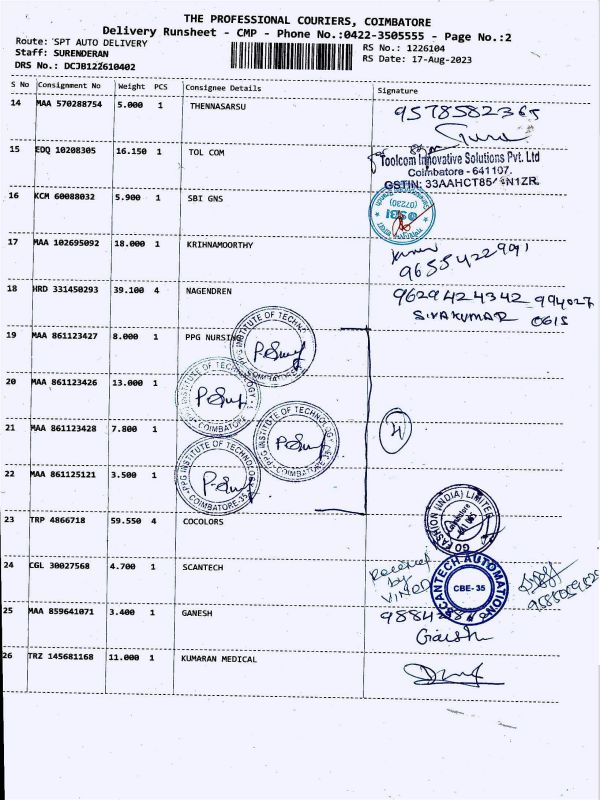 THE PROFESSIONAL COURIERS, COIMBATORE
Delivery Runsheet - CMP - Phone No.:0422-3505555 - Page No.:2
Route: SPT AUTO DELIVERY
RS No.: 1226104
Staff: SURENDERAN
RS Date: 17-Aug-2023
DRS No.: DCJB122610402
S No Consignment No Weight PCS Consignee Details Signature
14 MAA 570288754 5.000 1 THENNASARSU 9578582365
15 EDQ 10208305 16.150 1 TOL COM
Toolcom Innovative Solutions Pvt. Ltd
Coimbatore - 641107.
GSTIN: 33AAHCT85
16 KCM 60088032 5.900 1 SBI GNS
SBI
(07230)
17 MAA 102695092 18.000 1 KRIHNAMOORTHY
9655422991
18 HRD 331450293 39.100 4 NAGENDREN 9629424342 994027
SIVAKUMAR 0615
19 MAA 861123427 8.000 1 PPG NURSING
PPG INSTITUTE OF TECHNOLOGY
COIMBATORE
20 MAA 861123426 13.000 1
PPG INSTITUTE OF TECHNOLOGY
COIMBATORE
21 MAA 861123428 7.800 1
PPG INSTITUTE OF TECHNOLOGY
COIMBATORE
4
22 MAA 861125121 3.500 1
PPG INSTITUTE OF TECHNOLOGY
COIMBATORE-35
23 TRP 4866718 59.550 4 COCOLORS
GO FASHION (INDIA) LIMITED
24 CGL 30027568 4.700 1 SCANTECH
Received
by
VINOD
SCANTECH AUTOMATION
CBE-35
25 MAA 859641071 3.400 1 GANESH
Ganesh
26 TRZ 145681168 11.000 1 KUMARAN MEDICAL